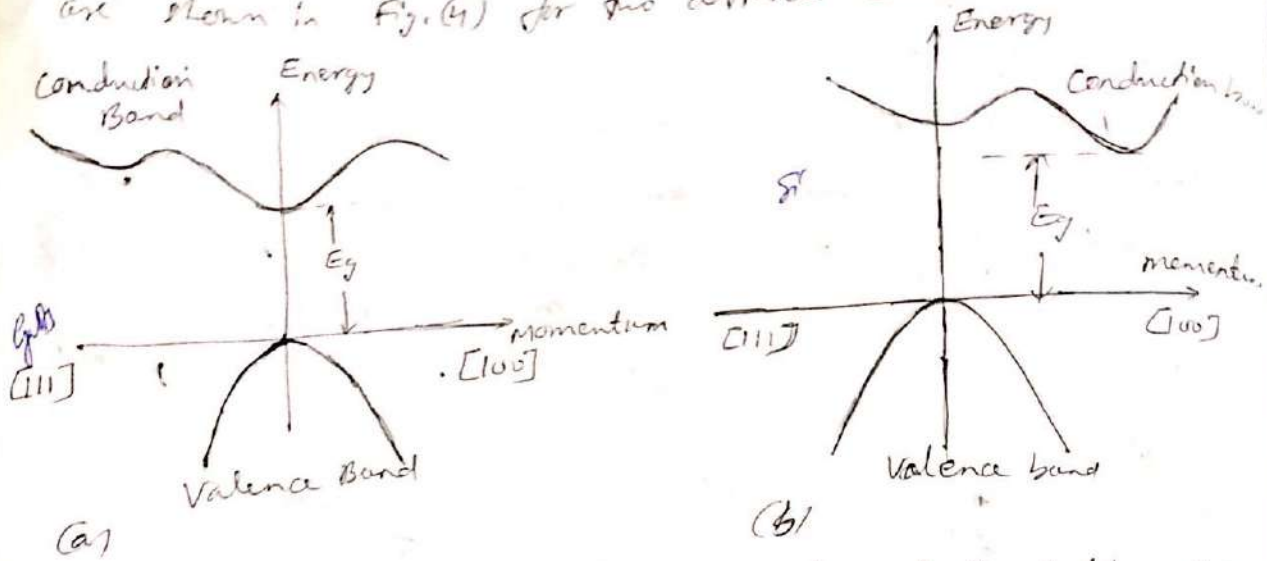 are shown in Fig.(4) for two
Conduction
Band
Energy
Eg
Momentum
GaAs
[111]
[100]
Valence Band
(a)
Energy
Conduction
Si
Eg.
[111]
[100]
Valence band
(b)